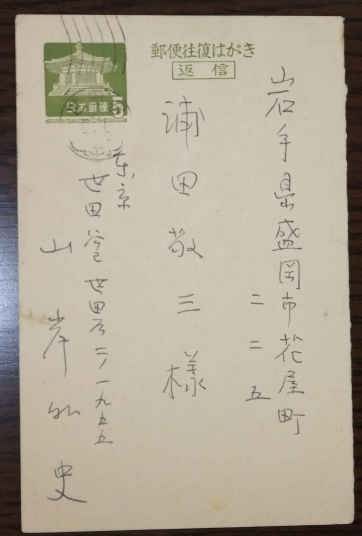 郵便往復はがき
返信
日本郵便 5
岩手県盛岡市花屋町
二 二 五
浦田敬三様
東京
世田谷世田谷二ノ一九五五
山岸外史